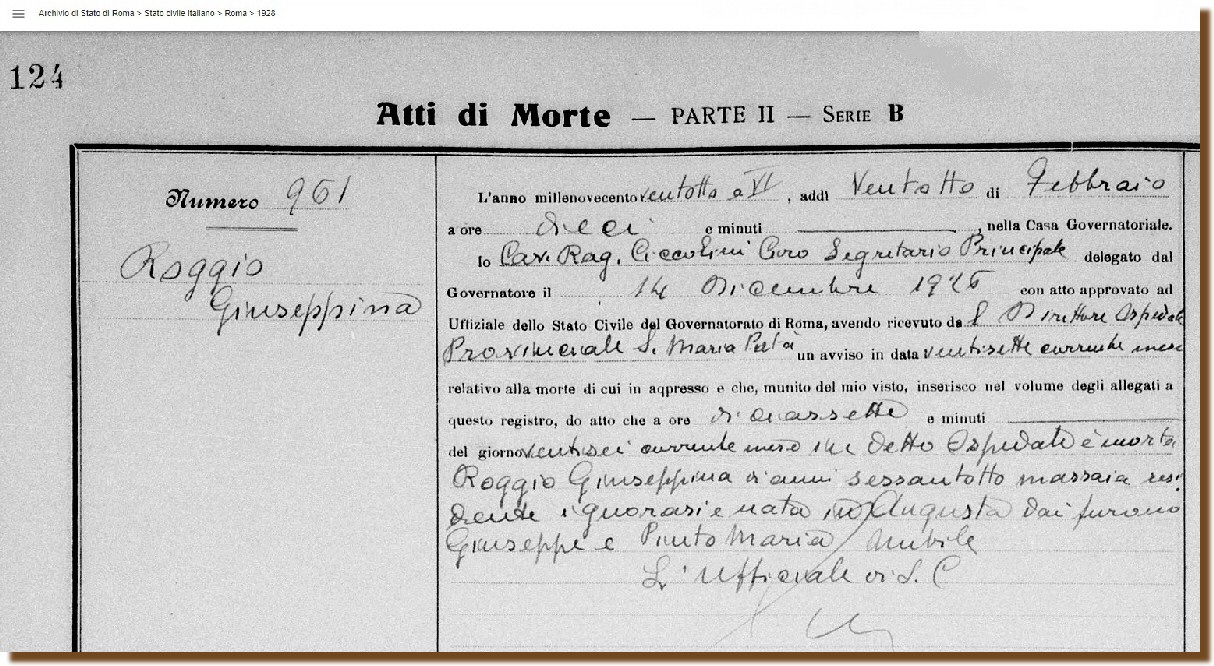 Archivio di Stato di Roma > Stato civile italiano > Roma > 1928
124
Atti di Morte — PARTE II — SERIE B
Numero 961
Roggio
Giuseppina
L'anno millenovecentoventotto a VI, addì Ventotto di Febbraio
a ore dieci e minuti , nella Casa Governatoriale.
Io Cav. Rag. Ciccolini Ciro Segretario Principale delegato dal
Governatore il 14 Dicembre 1926 con atto approvato ad
Uffiziale dello Stato Civile del Governatorato di Roma, avendo ricevuto da l Direttore Ospedale
Provinciale S. Maria Pietà un avviso in data ventisette corrente mese
relativo alla morte di cui in appresso e che, munito del mio visto, inserisco nel volume degli allegati a
questo registro, do atto che a ore diciassette e minuti
del giorno ventisei corrente mese in detto Ospedale è morta
Roggio Giuseppina di anni sessantotto massaia resi
dente ignorasi e nata in Augusta dai furono
Giuseppe e Pinto Maria nubile
L'Ufficiale di S. C